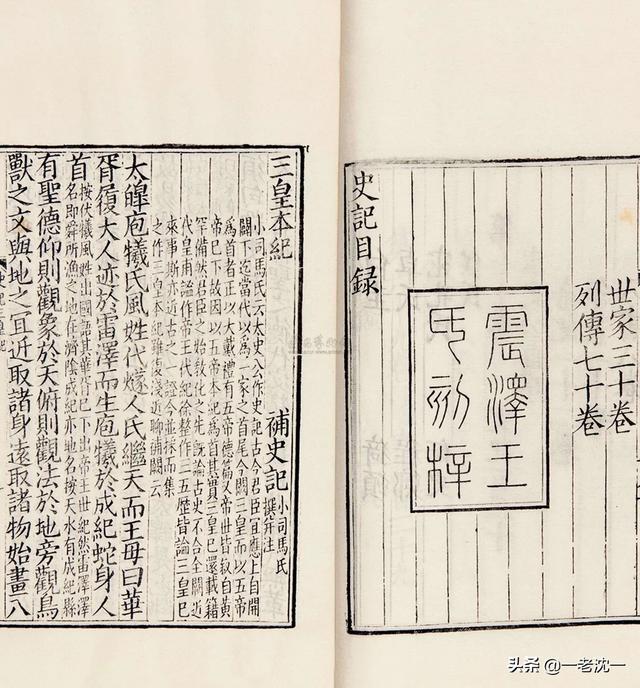 世家三十卷
列傳七十卷
震澤王
氏刻梓
史記目錄
三皇本紀
補史記
小司馬氏
撰并注
小司馬氏云太史公作史記古今君臣宜應上自開
闢下迄當代以為一家之首尾今闕三皇而以五帝
為首者正以大戴禮有五帝德篇又帝世皆叙自黃
帝已下故因以五帝本紀為首其實三皇已還載籍
罕備然君臣之始敎化之先旣論古史不合全闕近
代皇甫謐作帝王代紀徐整作三五歷皆論三皇已
來事斯亦近古之一證今並採而集
之作三皇本紀雖復淺近聊補闕云
太皞庖犧氏風姓代燧人氏繼天而王母曰華
胥履大人迹於雷澤而生庖犧於成紀蛇身人
首
按伏犧風姓出國語其華胥已下出帝王世紀然雷澤澤
名即舜所漁之地在濟陰成紀亦地名按天水有成紀縣
有聖德仰則觀象於天俯則觀法於地旁觀鳥
獸之文與地之宜近取諸身遠取諸物始畫八
头条 @一老沈一